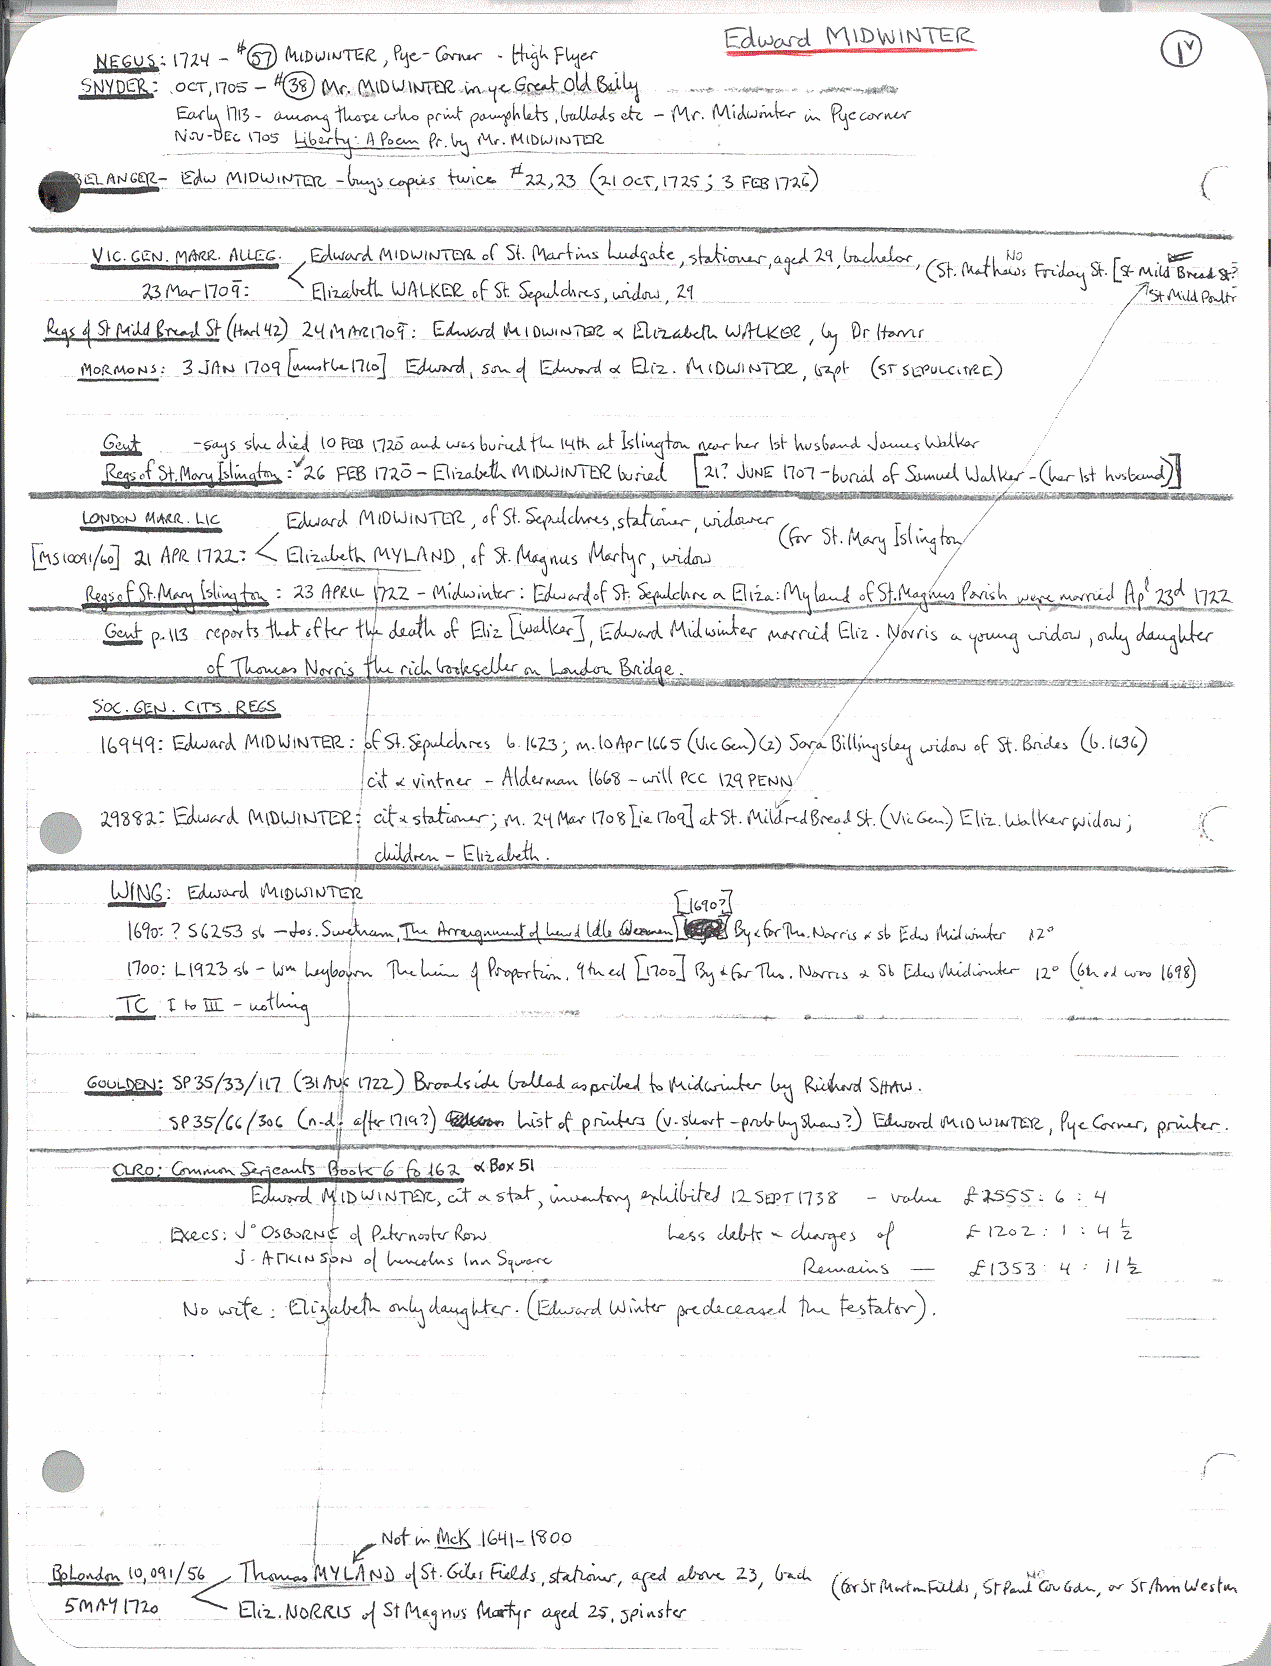 Edward MIDWINTER
1v
NEGUS: 1724 - #57 MIDWINTER, Pye-Corner - High Flyer
SNYDER: OCT, 1705 - #38 Mr. MIDWINTER in ye Great Old Baily
Early 1713 - among those who print pamphlets, ballads etc - Mr. Midwinter in Pyecorner
NOV-DEC 1705 Liberty: A Poem Pr. by Mr. MIDWINTER
BELANGER - Edw MIDWINTER - buys copies twice #22, 23 (21 OCT, 1725; 3 FEB 1726)
VIC. GEN. MARR. ALLEG. Edward MIDWINTER of St. Martins Ludgate, stationer, aged 29, bachelor, (St. Mathews NO Friday St. [St Mild Bread St?
23 Mar 1709: Elizabeth WALKER of St. Sepulchres, widow, 29 St Mild Poultr
Regs of St Mild Bread St (Harl 42) 24 MAR 1709: Edward MIDWINTER & Elizabeth WALKER, by Dr Harris
MORMONS: 3 JAN 1709 [must be 1710] Edward, son of Edward & Eliz. MIDWINTER, bapt (ST SEPULCHRE)
Gent - says she died 10 FEB 1720 and was buried the 14th at Islington near her 1st husband James Walker
Regs of St. Mary Islington: 26 FEB 1720 - Elizabeth MIDWINTER buried [21? JUNE 1707 - burial of Samuel Walker - (her 1st husband)]
LONDON MARR. LIC Edward MIDWINTER, of St. Sepulchres, stationer, widower (for St. Mary Islington
[MS10091/60] 21 APR 1722: Elizabeth MYLAND, of St. Magnus Martyr, widow
Regs of St. Mary Islington: 23 APRIL 1722 - Midwinter: Edward of St. Sepulchre & Eliza: Myland of St. Magnus Parish were married Apl 23d 1722
Gent p. 113 reports that after the death of Eliz [Walker], Edward Midwinter married Eliz. Norris a young widow, only daughter
of Thomas Norris the rich bookseller on London Bridge.
SOC. GEN. CITS. REGS
16949: Edward MIDWINTER: of St. Sepulchres b. 1623; m. 10 Apr 1665 (Vic Gen) (2) Sara Billingsley widow of St. Brides (b. 1636)
cit & vintner - Alderman 1668 - will PCC 129 PENN
29882: Edward MIDWINTER: cit & stationer; m. 24 Mar 1708 [ie 1709] at St. Mildred Bread St. (Vic Gen) Eliz. Walker widow;
children - Elizabeth.
WING: Edward MIDWINTER
[1690?]
1690: ? S6253 sb - Jos. Swetnam, The Arraignment of Lewd Idle Women By & for Tho. Norris & sb Edw Midwinter 12°
1700: L1923 sb - Wm Leybourn The Line of Proportion. 9th ed [1700] By & for Tho. Norris & Sb Edw Midwinter 12° (6th ed was 1698)
TC I to III - nothing
GOULDEN: SP35/33/117 (31 AUG 1722) Broadside ballad ascribed to Midwinter by Richard SHAW.
SP35/66/306 (n.d. after 1719?) List of printers (v. short - prob by Shaw?) Edward MIDWINTER, Pye Corner, printer.
CLRO: Common Serjeants Book 6 fo 162 & Box 51
Edward MIDWINTER, cit & stat, inventory exhibited 12 SEPT 1738 - value £2555: 6: 4
Execs: Jo OSBORNE of Paternoster Row Less debts & charges of £1202: 1: 4½
J. ATKINSON of Lincolns Inn Square Remains — £1353: 4: 11½
No wife: Elizabeth only daughter. (Edward Winter predeceased the testator).
Not in McK 1641-1800
Bp London 10,091/56 Thomas MYLAND of St. Giles Fields, stationer, aged above 23, bach (for St Martin Fields, St Paul Cov Gdn, or St Ann Westm
5 MAY 1720 Eliz. NORRIS of St Magnus Martyr aged 25, spinster